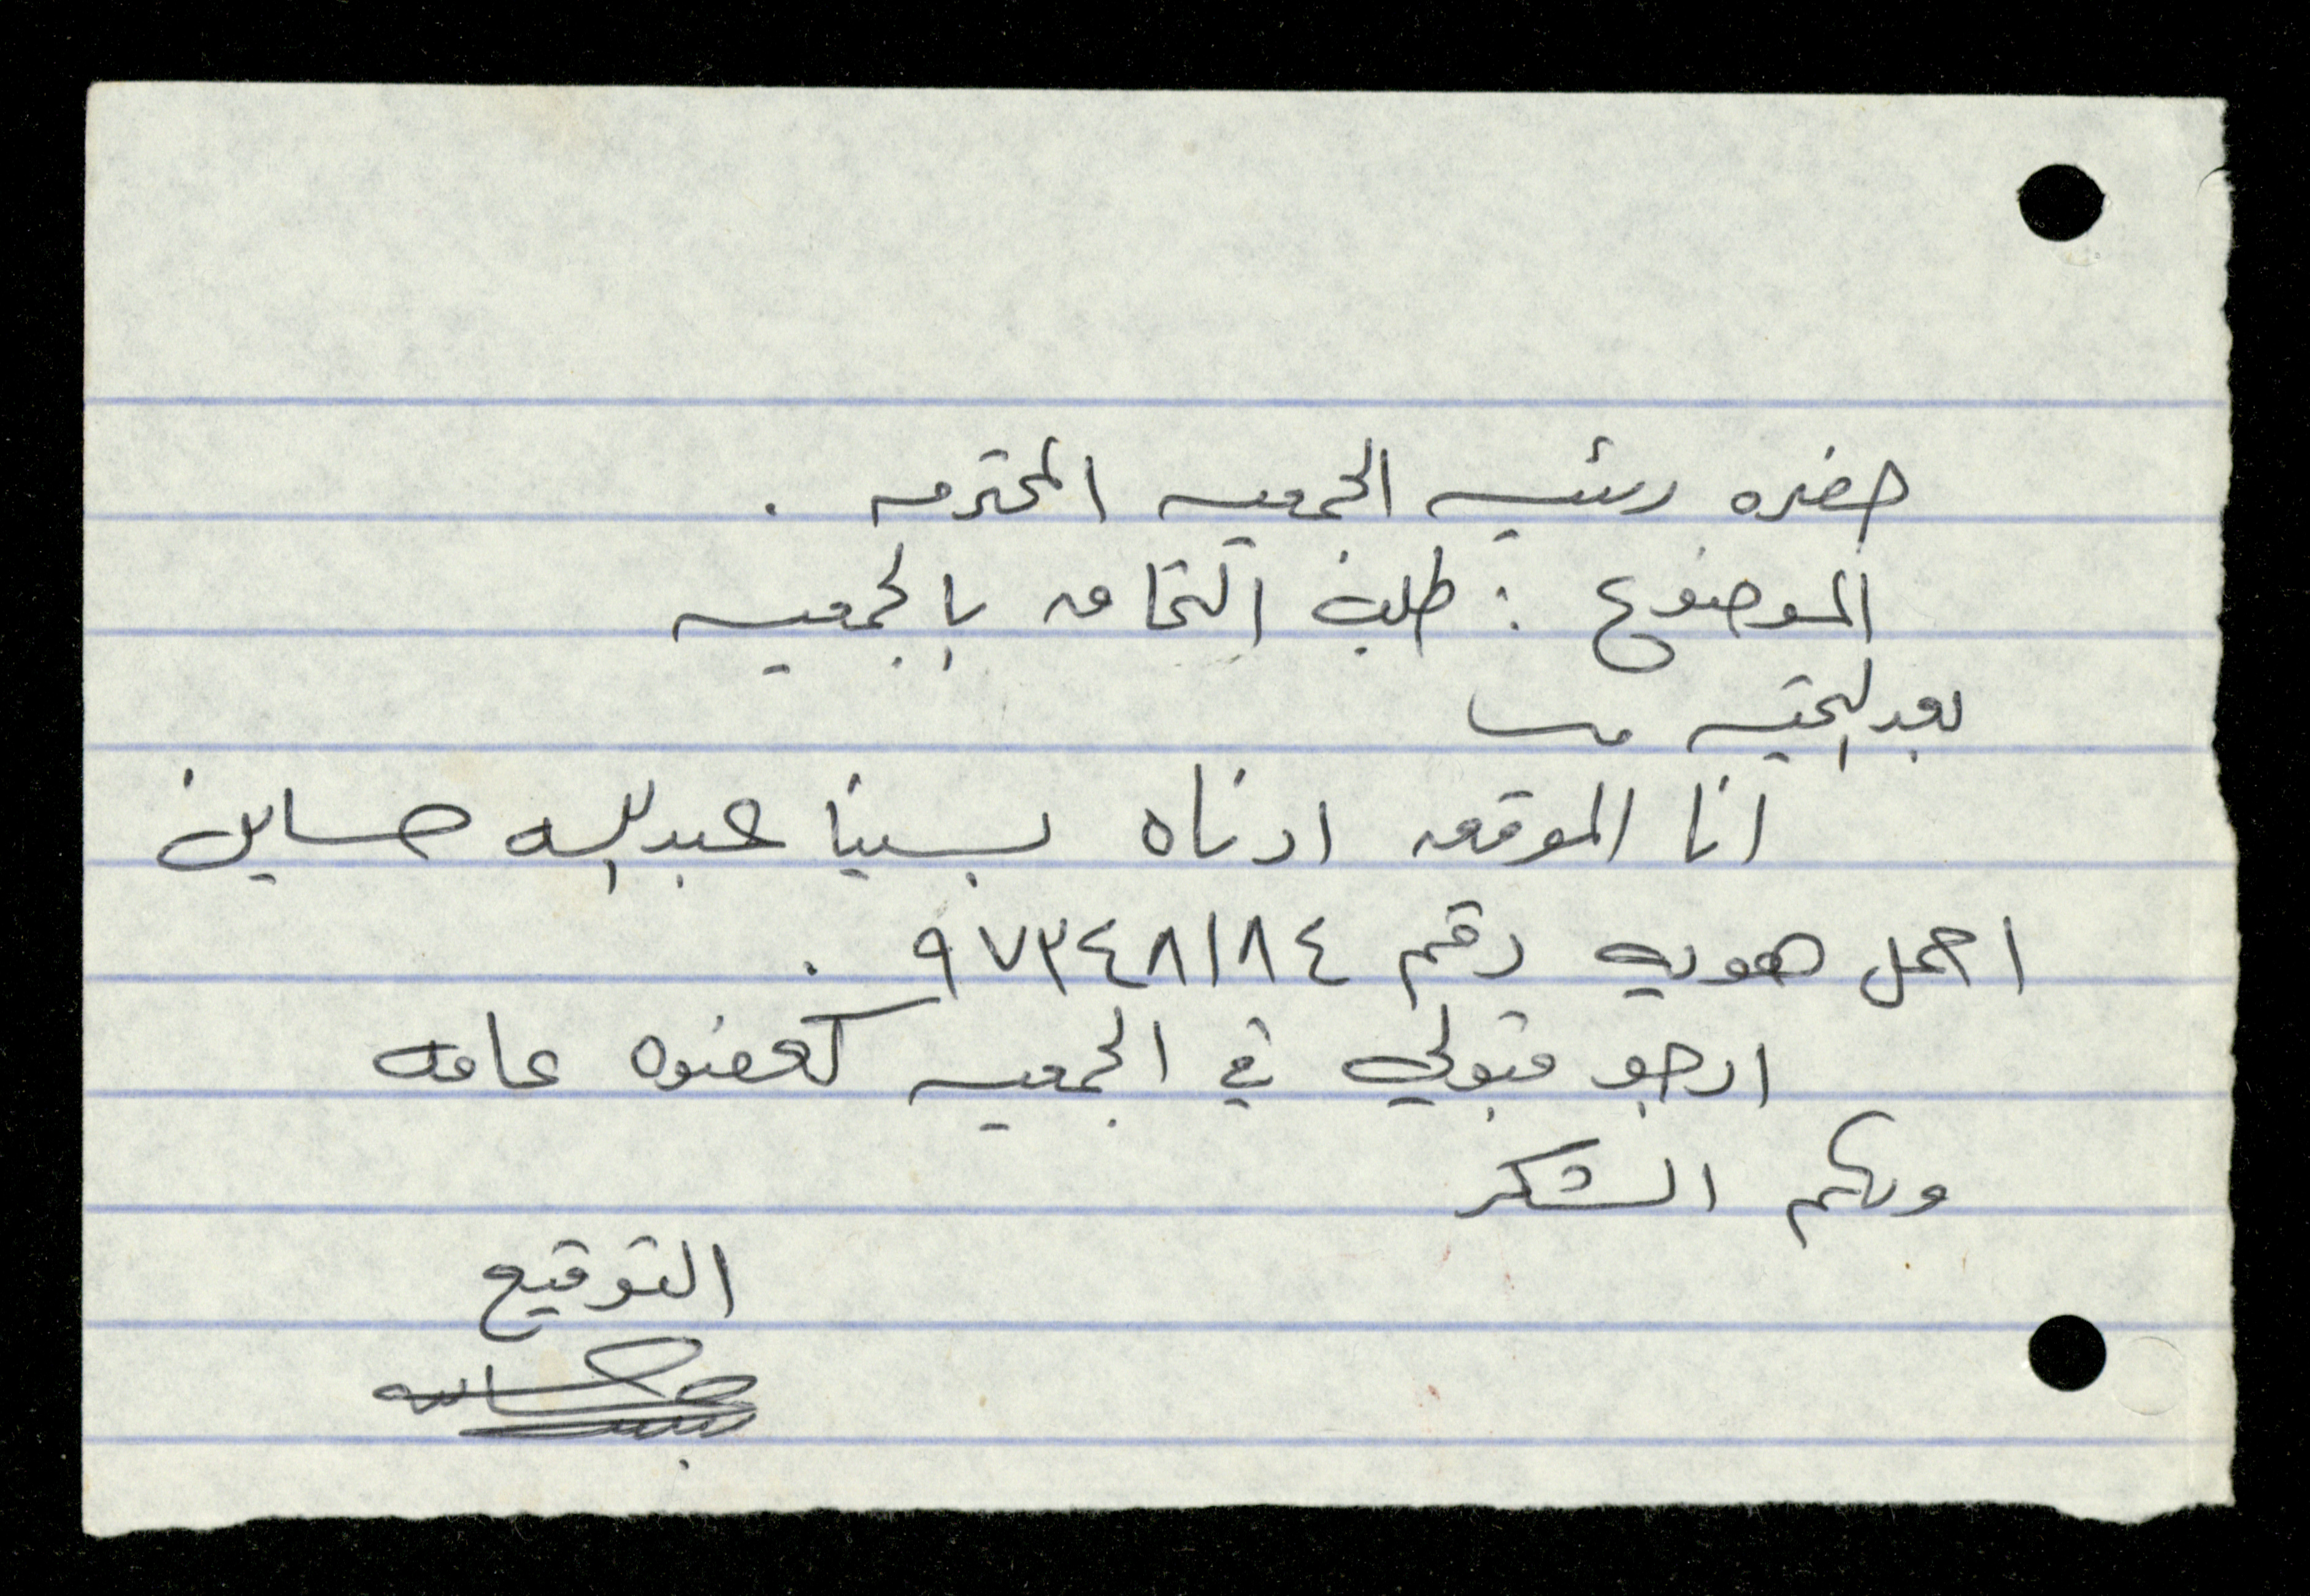 حضره رئيسه الجمعيه المحترمه .
الموضوع : طلب التحاق بالجمعيه
بعد التحيه
انا الموقعه ادناه بسينا عبد الله حساين
احمل هويه رقم ٩٧٣٤٨١٨٤ .
ارجو قبولي في الجمعيه كعضوه عامه
ولكم الشكر
التوقيع